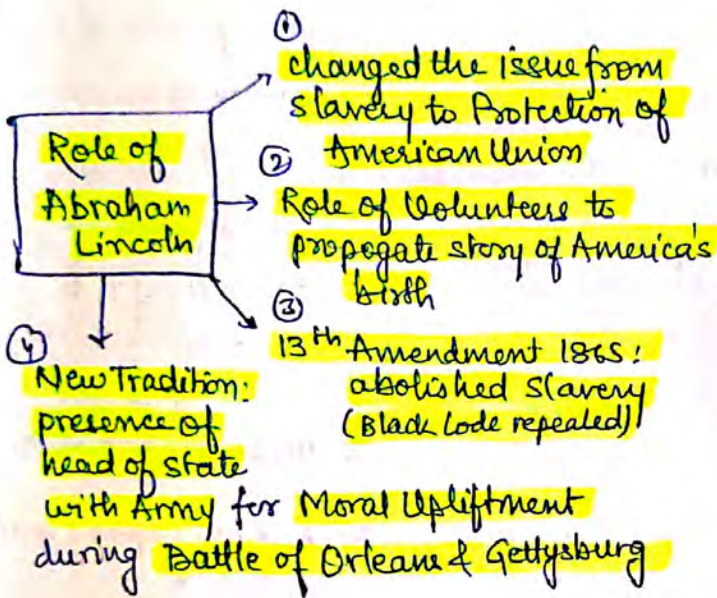 Role of
Abraham
Lincoln
①
changed the issue from
slavery to Protection of
American Union
②
Role of Volunteers to
propogate story of America's
birth
③
13th Amendment 1865:
abolished slavery
(Black Code repealed)
④
New Tradition:
presence of
head of state
with Army for Moral Upliftment
during Battle of Orleans & Gettysburg